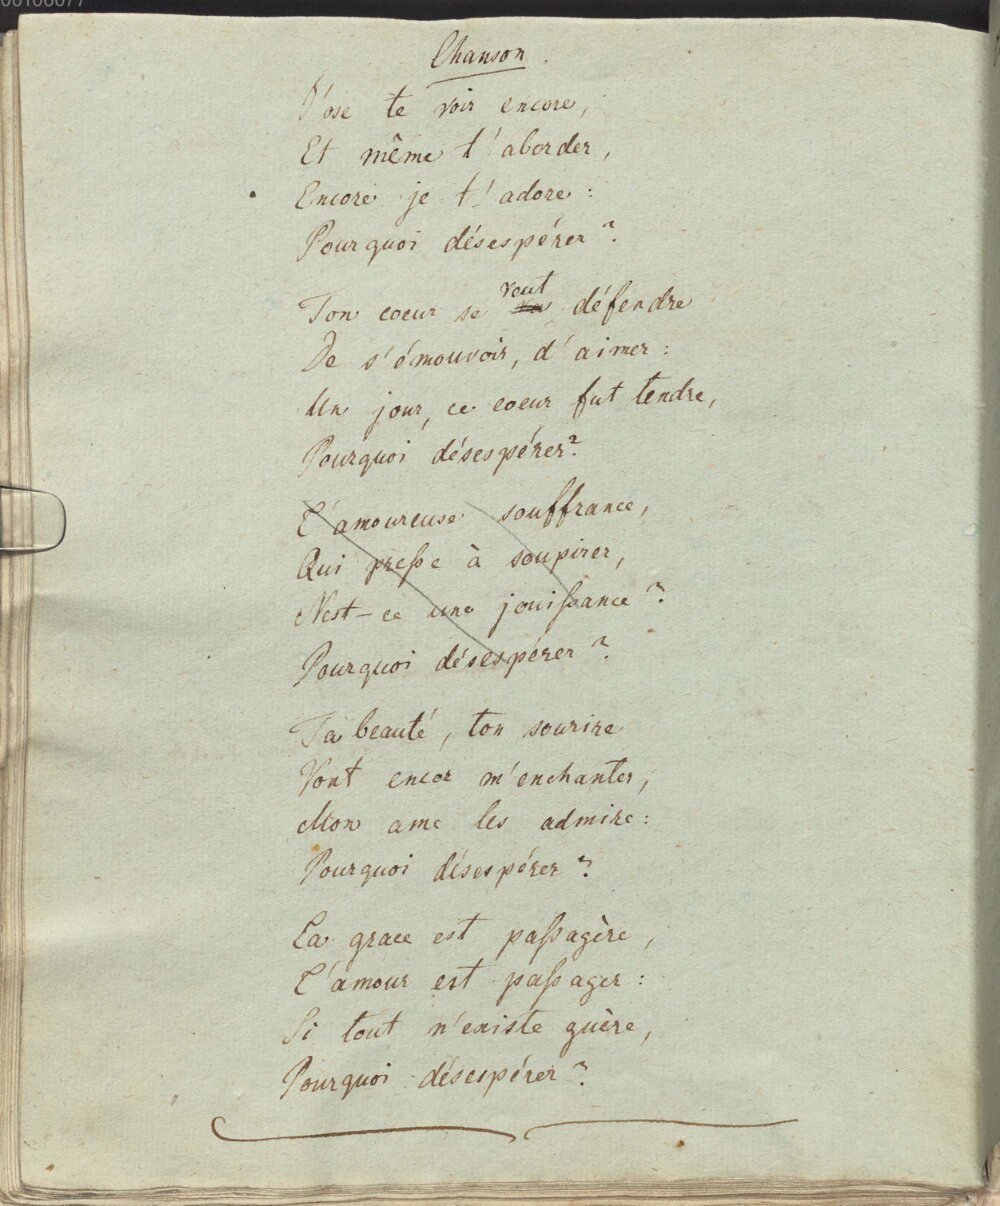 00106077
Chanson.
J'ose te voir encore,
Et même t'aborder,
Encore je t'adore:
Pourquoi désespérer?
Ton coeur se veut défendre
De s'émouvoir, d'aimer:
Un jour, ce coeur fut tendre,
Pourquoi désespérer?
L'amoureuse souffrance,
Qui preſse à soupirer,
N'est-ce une jouiſsance?
Pourquoi désespérer?
Ta beauté, ton sourire
Vont encor m'enchanter,
Mon ame les admire:
Pourquoi désespérer?
La grace est paſsagère,
L'amour est paſsager:
Si tout n'existe guère,
Pourquoi désespérer?